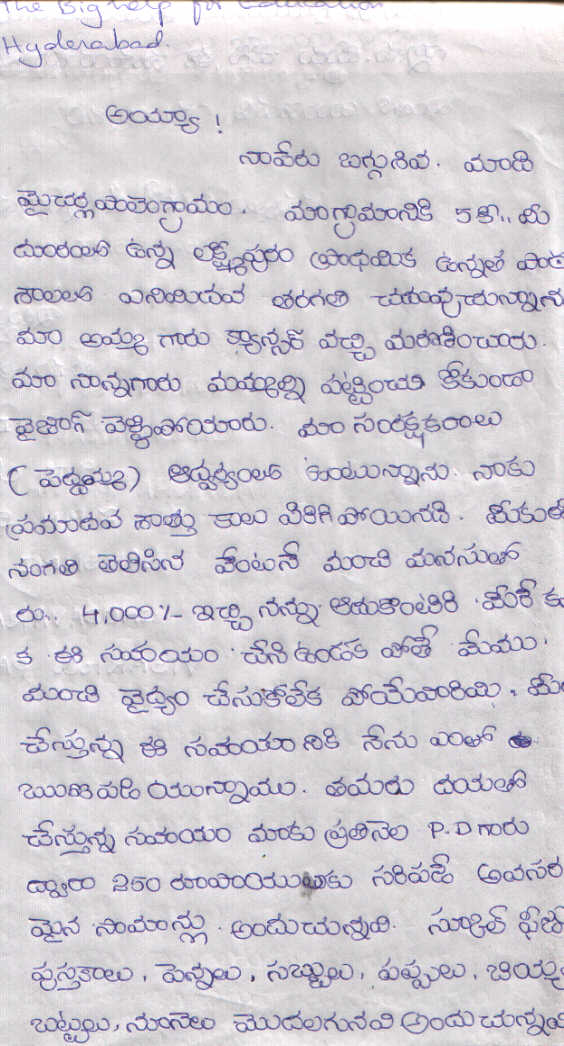 The Big help for Education
Hyderabad.
అయ్యా !
నాపేరు బగ్గుశివ. మాది
మైచర్లపాలెంగ్రామం. మాగ్రామానికి 5 కి.. మీ
దూరంలో ఉన్న లక్ష్మీపురం ప్రాథమిక ఉన్నత పాఠ
శాలలో ఎనిమిదవ తరగతి చదువుచున్నాను
మా అమ్మ గారు క్యాన్సర్ వచ్చి మరణించారు.
మా నాన్నగారు మమ్మల్ని పట్టించు కోకుండా
వెళ్ళిపోయారు. మా సంరక్షకురాలు
( పెద్దమ్మ ) ఆధ్వర్యంలో ఉంటున్నాను. నాకు
ప్రమాదవ శాత్తు కాలు విరిగి పోయినది. మీకు
సంగతి తెలిసిన వెంటనే మంచి మనసుతో
రూ.. 4,000/- ఇచ్చి నన్ను ఆదుకొంటిరి. మీరే క
క ఈ సహాయం చేసి ఉండక పోతే మేము
మంచి వైద్యం చేసుకోలేక పోయేవారిమి. మీరు
చేస్తున్న ఈ సహాయా నికి నేను ఎంతో
ఋణపడి యున్నాము. తమరు దయతో
చేస్తున్న సహాయం మాకు ప్రతినెల P.D గారు
ద్వారా 250 రూపాయులకు సరిపడే అవసర
మైన సామాన్లు అందుచున్నవి. స్కూల్ ఫీజు
పుస్తకాలు, పెన్నులు, సబ్బులు, పప్పులు, బియ్యం
బట్టలు, నూనెలు మొదలగునవి అందుచున్నవి